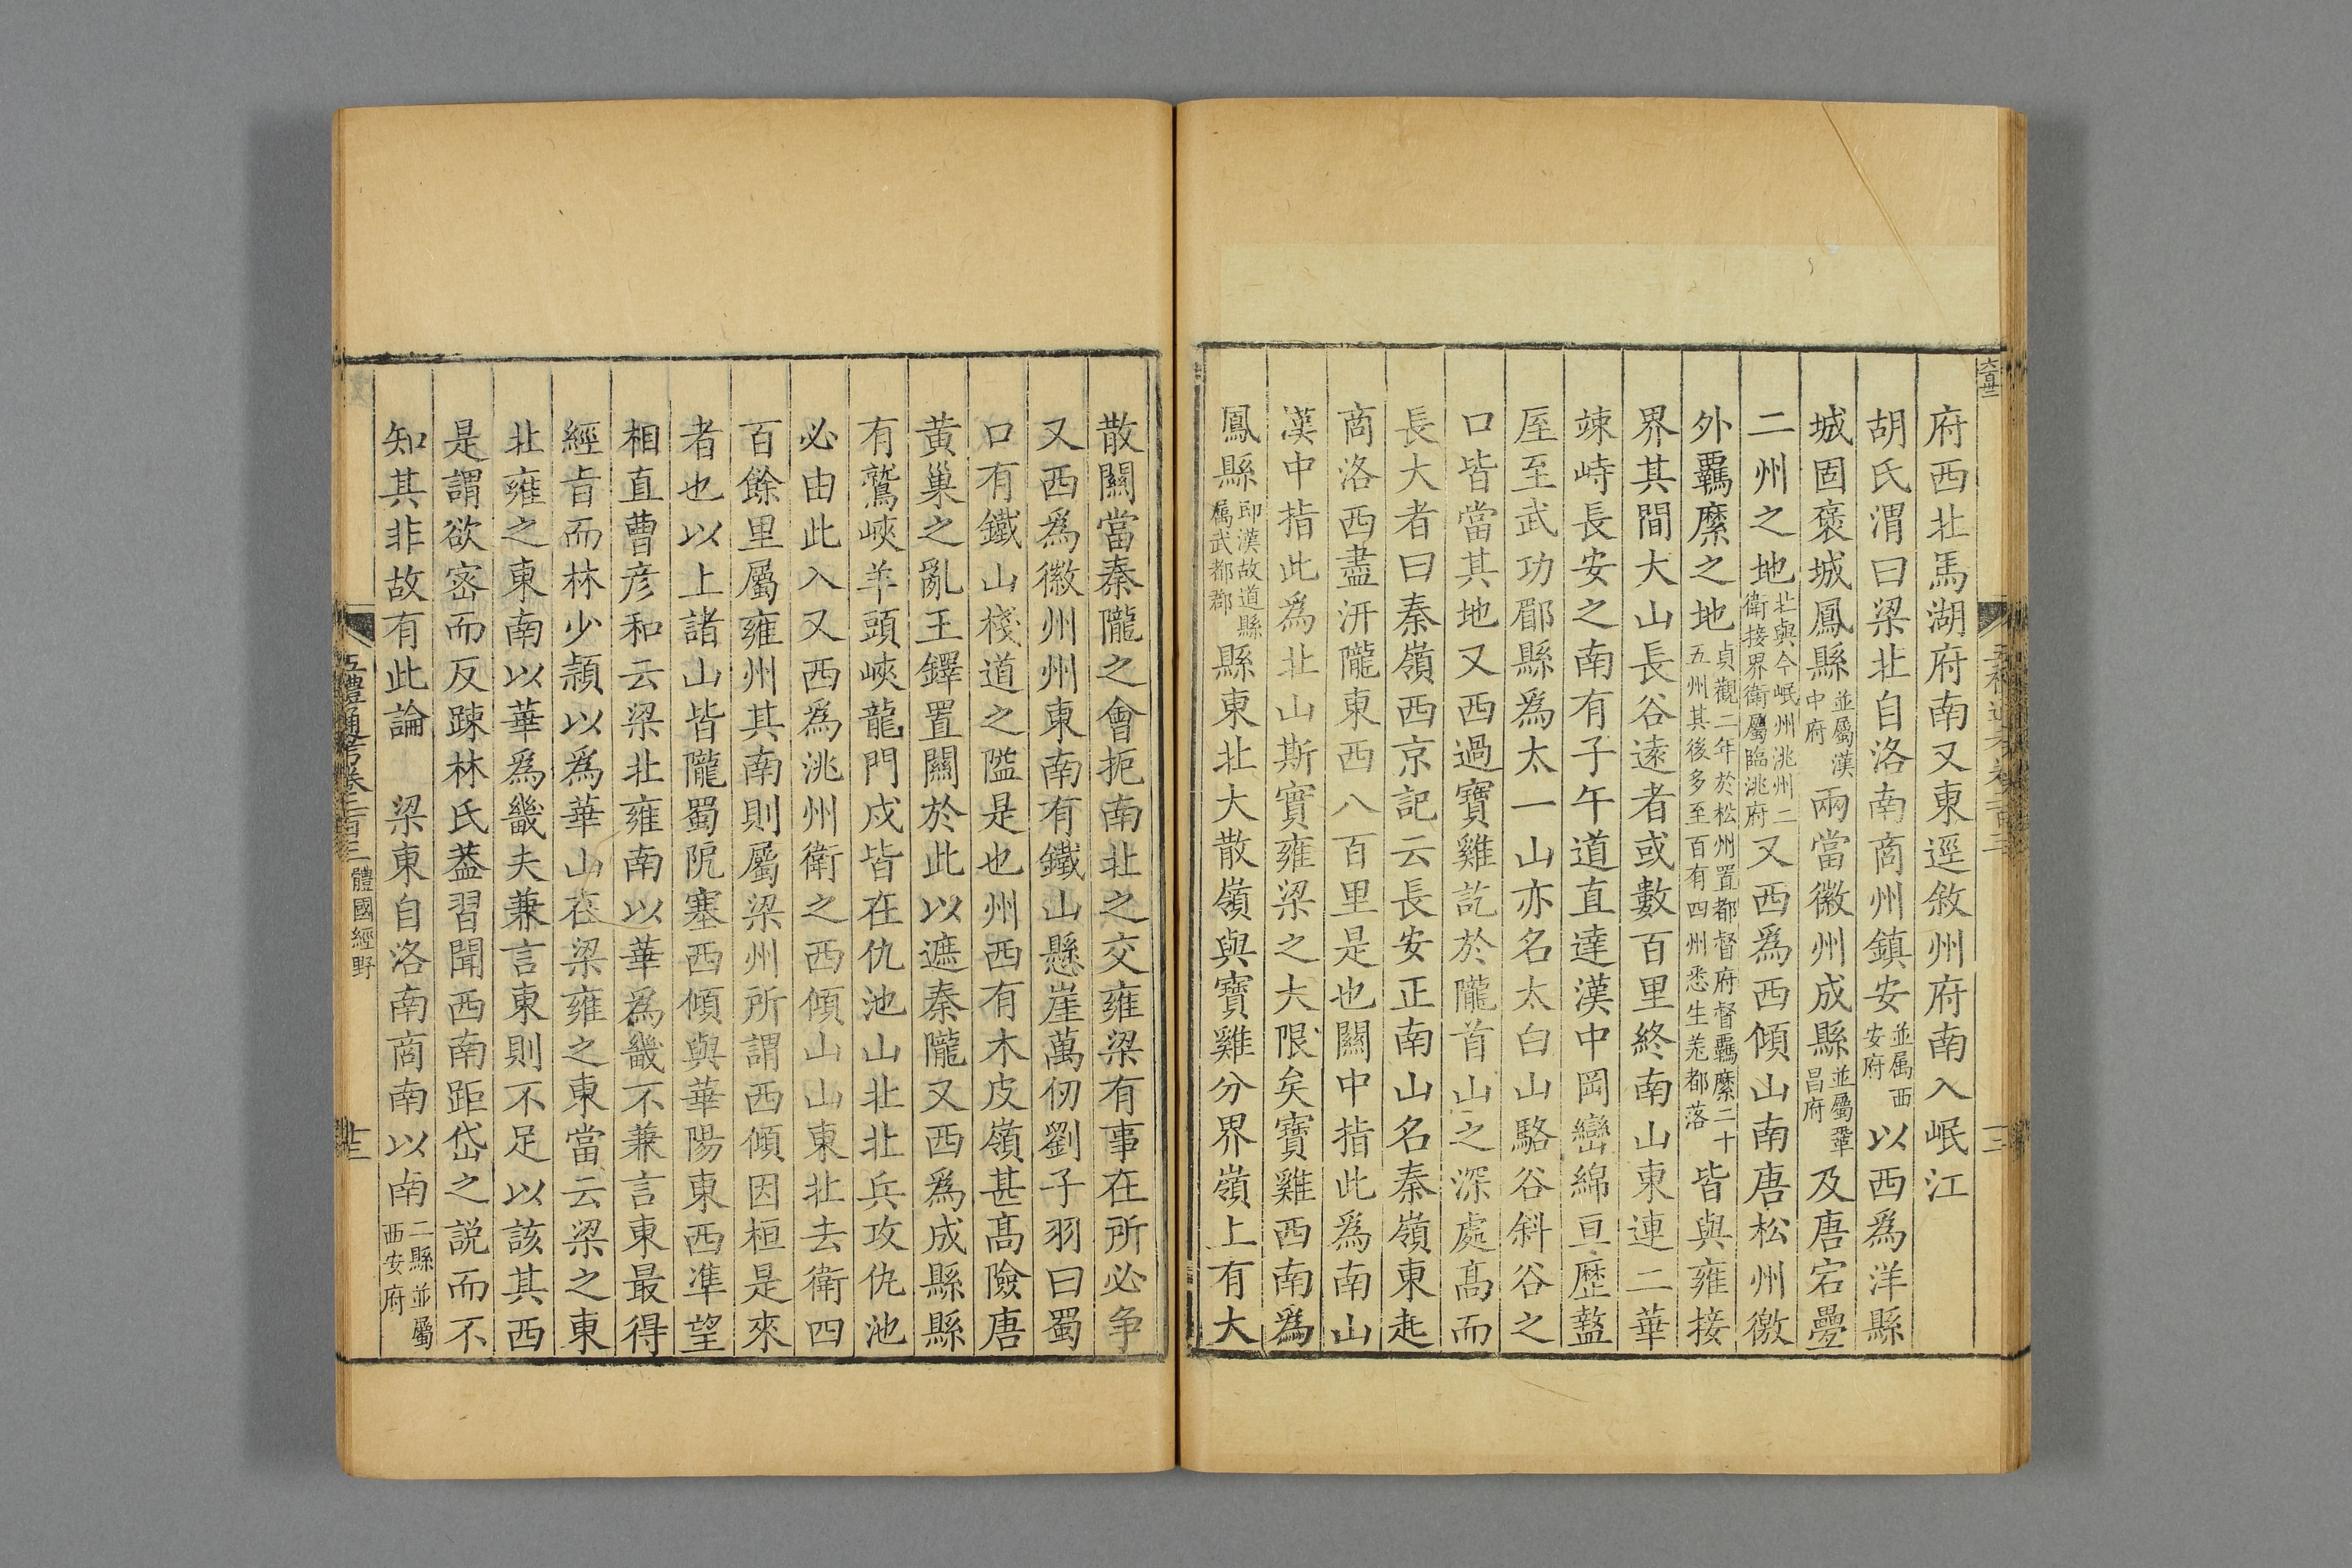 府西北馬湖府南又東逕敘州府南入岷江
胡氏渭曰梁北自洛南商州鎮安並屬西安府以西爲洋縣
城固褒城鳳縣並屬漢中府兩當徽州成縣並屬鞏昌府及唐宕疊
二州之地北與今岷州洮州二衛接界衛屬臨洮府又西爲西傾山南唐松州徼
外羈縻之地貞觀二年於松州置都督府督羈縻二十五州其後多至百有四州悉生羌都落皆與雍接
界其間大山長谷遠者或數百里終南山東連二華
竦峙長安之南有子午道直達漢中岡巒綿亘歷盩
厔至武功郿縣爲太一山亦名太白山駱谷斜谷之
口皆當其地又西過寶雞訖於隴首山之深處高而
長大者曰秦嶺西京記云長安正南山名秦嶺東起
商洛西盡汧隴東西八百里是也關中指此爲南山
漢中指此爲北山斯實雍梁之大限矣寶雞西南爲
鳳縣卽漢故道縣屬武都郡縣東北大散嶺與寶雞分界嶺上有大
散關當秦隴之會扼南北之交雍梁有事在所必争
又西爲徽州州東南有鐵山懸崖萬仞劉子羽曰蜀
口有鐵山棧道之隘是也州西有木皮嶺甚高險唐
黄巢之亂王鐸置關於此以遮秦隴又西爲成縣縣
有鷲峽羊頭峽龍門戍皆在仇池山北北兵攻仇池
必由此入又西爲洮州衛之西傾山山東北去衛四
百餘里屬雍州其南則屬梁州所謂西傾因桓是來
者也以上諸山皆隴蜀阨塞西傾與華陽東西準望
相直曹彦和云梁北雍南以華爲畿不兼言東最得
經旨而林少穎以爲華山在梁雍之東當云梁之東
北雍之東南以華爲畿夫兼言東則不足以該其西
是謂欲密而反踈林氏葢習聞西南距岱之説而不
知其非故有此論　梁東自洛南商南以南二縣並屬西安府
五禮通考卷二百三　體國經野　廿三